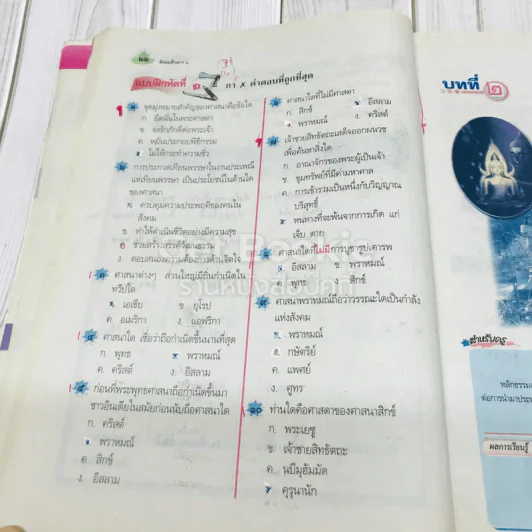 ๒๒
สังคมศึกษา ๖
แบบฝึกหัดที่ ๑ กา ✗ คำตอบที่ถูกที่สุด
๑ จุดมุ่งหมายสำคัญของศาสนาคือข้อใด
ก. ยึดมั่นในพระศาสดา
ข. จงรักภักดีต่อพระเจ้า
ค. หมั่นประกอบพิธีกรรม
ไม่ให้กระทำความชั่ว
๒ การประกวดเทียนพรรษาในงานประเพณี
แห่เทียนพรรษา เป็นประโยชน์ในด้านใด
ของศาสนา
ก. ควบคุมความประพฤติของคนใน
สังคม
ข. ทำให้ดำเนินชีวิตอย่างมีความสุข
ช่วยสร้างสรรค์วัฒนธรรม
ง. ตอบสนองความต้องการด้านจิตใจ
๓ ศาสนาต่างๆ ส่วนใหญ่มีถิ่นกำเนิดใน
ทวีปใด
ก. เอเชีย ข. ยุโรป
ค. อเมริกา ง. แอฟริกา
๔ ศาสนาใด เชื่อว่าถือกำเนิดขึ้นนานที่สุด
ก. พุทธ ข. พราหมณ์
ค. คริสต์ ง. อิสลาม
๕ ก่อนที่พระพุทธศาสนาถือกำเนิดขึ้นมา
ชาวอินเดียในสมัยก่อนนับถือศาสนาใด
ก. คริสต์
ข. พราหมณ์
ค. สิกข์
ง. อิสลาม
๖ ศาสนาใดที่ไม่มีศาสดา
ก. สิกข์ ข. อิสลาม
พราหมณ์ ง. คริสต์
๗ เจ้าชายสิทธัตถะเสด็จออกผนวช
เพื่อค้นหาสิ่งใด
ก. อาณาจักรของพระผู้เป็นเจ้า
ข. ขุมทรัพย์ที่มีค่ามหาศาล
ค. การเข้ารวมเป็นหนึ่งกับวิญญาณ
บริสุทธิ์
หนทางที่จะพ้นจากการเกิด แก่
เจ็บ ตาย
๘ ศาสนาใดที่ไม่มีการบูชารูปเคารพ
อิสลาม ข. พราหมณ์
ค. พุทธ ง. สิกข์
๙ ศาสนาพราหมณ์ถือว่าวรรณะใดเป็นกำลัง
แห่งสังคม
ก. พราหมณ์
ข. กษัตริย์
ค. แพศย์
ง. ศูทร
๑๐ ท่านใดคือศาสดาของศาสนาสิกข์
ก. พระเยซู
ข. เจ้าชายสิทธัตถะ
ค. นบีมุฮัมมัด
คุรุนานัก
บทที่ ๒
สำหรับครู
หลักธรรม
ต่อการนำมาประ
ผลการเรียนรู้
ร้านหนังสือ